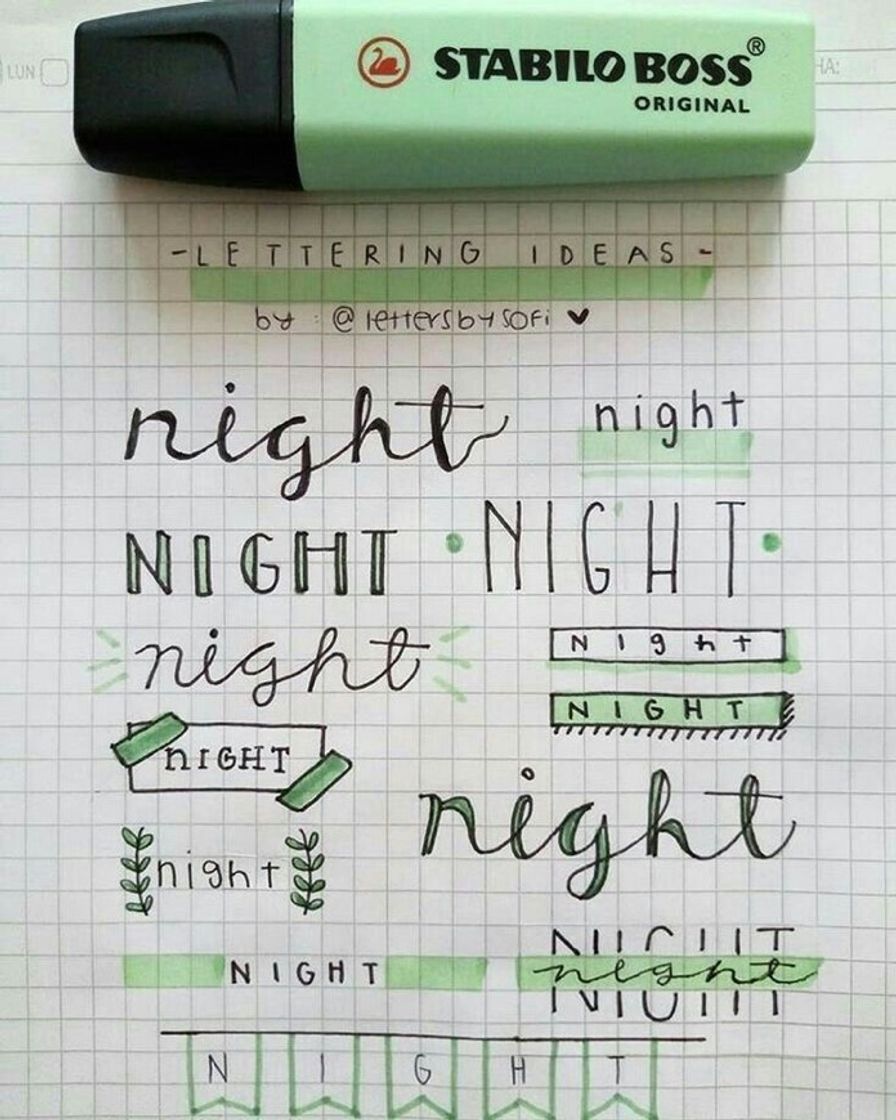 STABILO BOSS®
ORIGINAL
LUN
HA:
-LETTERING IDEAS-
by: @lettersbysofi ♥
night
night
NIGHT
NIGHT
night
Night
NIGHT
NIGHT
night
night
NIGHT
NIGHT
night
NIGHT